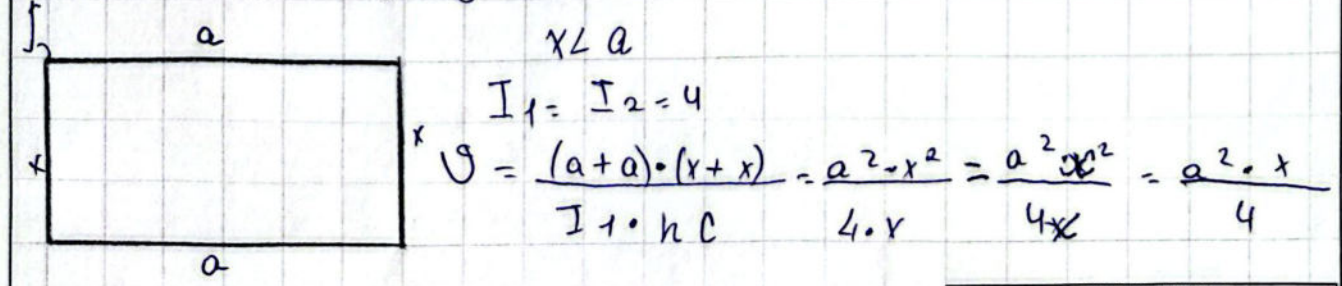 a
x < a
I₁ = I₂ = 4
x
x
ϑ = (a + a)·(x + x) / I₁·hc = a²·x² / 4·x = a²x² / 4x = a²·x / 4
a